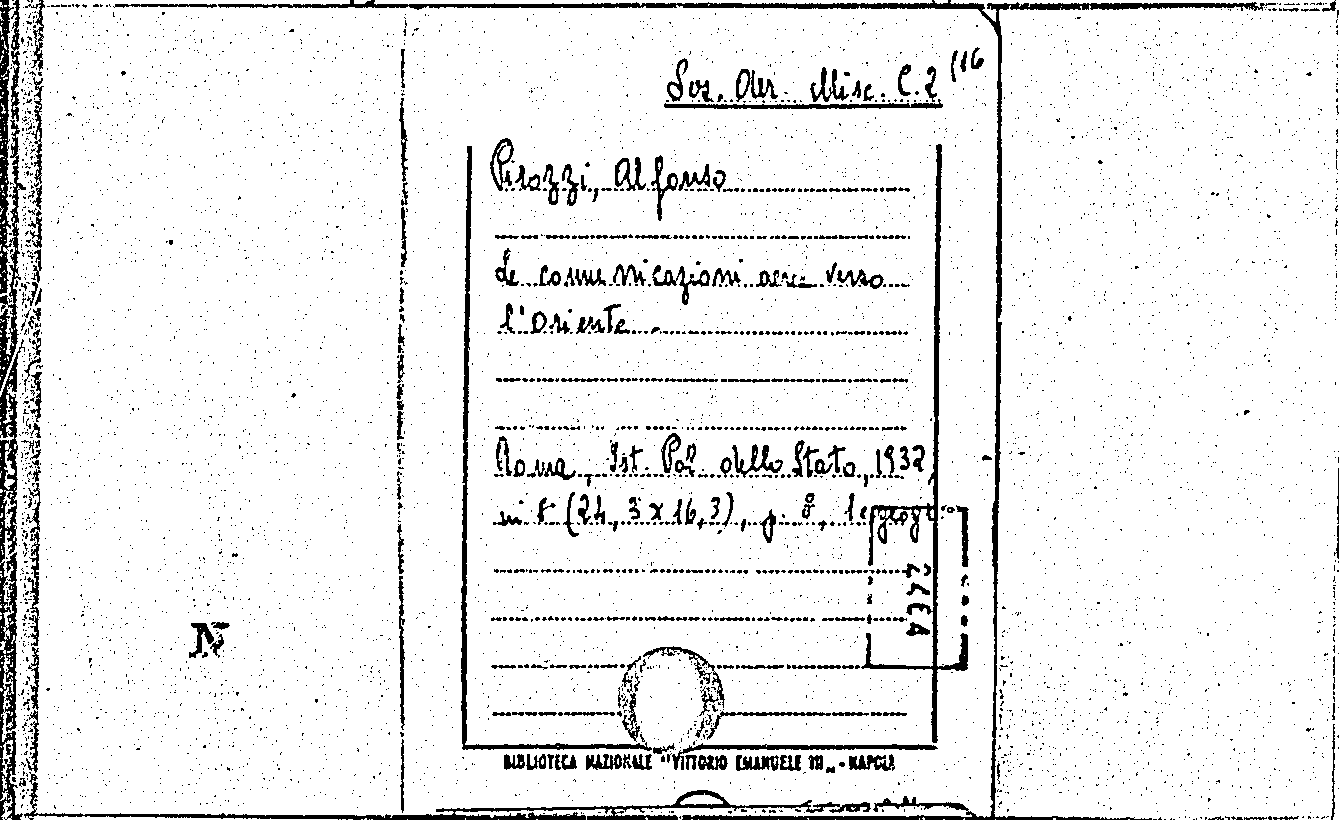 Soz. Aer. Misc. C.2 (16
Pirozzi, Alfonso
Le comunicazioni aeree verso
l'Oriente.
Roma, Ist. Pol. dello Stato, 1932,
in 8° (24,3x16,3), p. 8,
N
BIBLIOTECA NAZIONALE "VITTORIO EMANUELE III" - NAPOLI